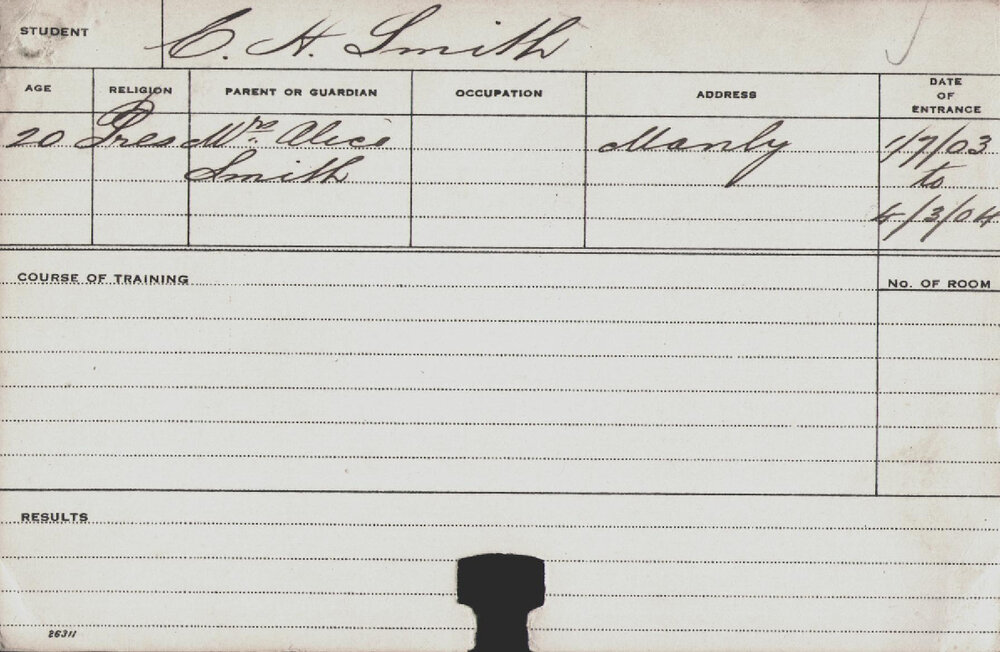 STUDENT C. H. Smith
AGE RELIGION PARENT OR GUARDIAN OCCUPATION ADDRESS DATE OF ENTRANCE
20 Pres Mrs. Alice Manly 1/7/03
Smith to
4/3/04
COURSE OF TRAINING No. OF ROOM
RESULTS
26311